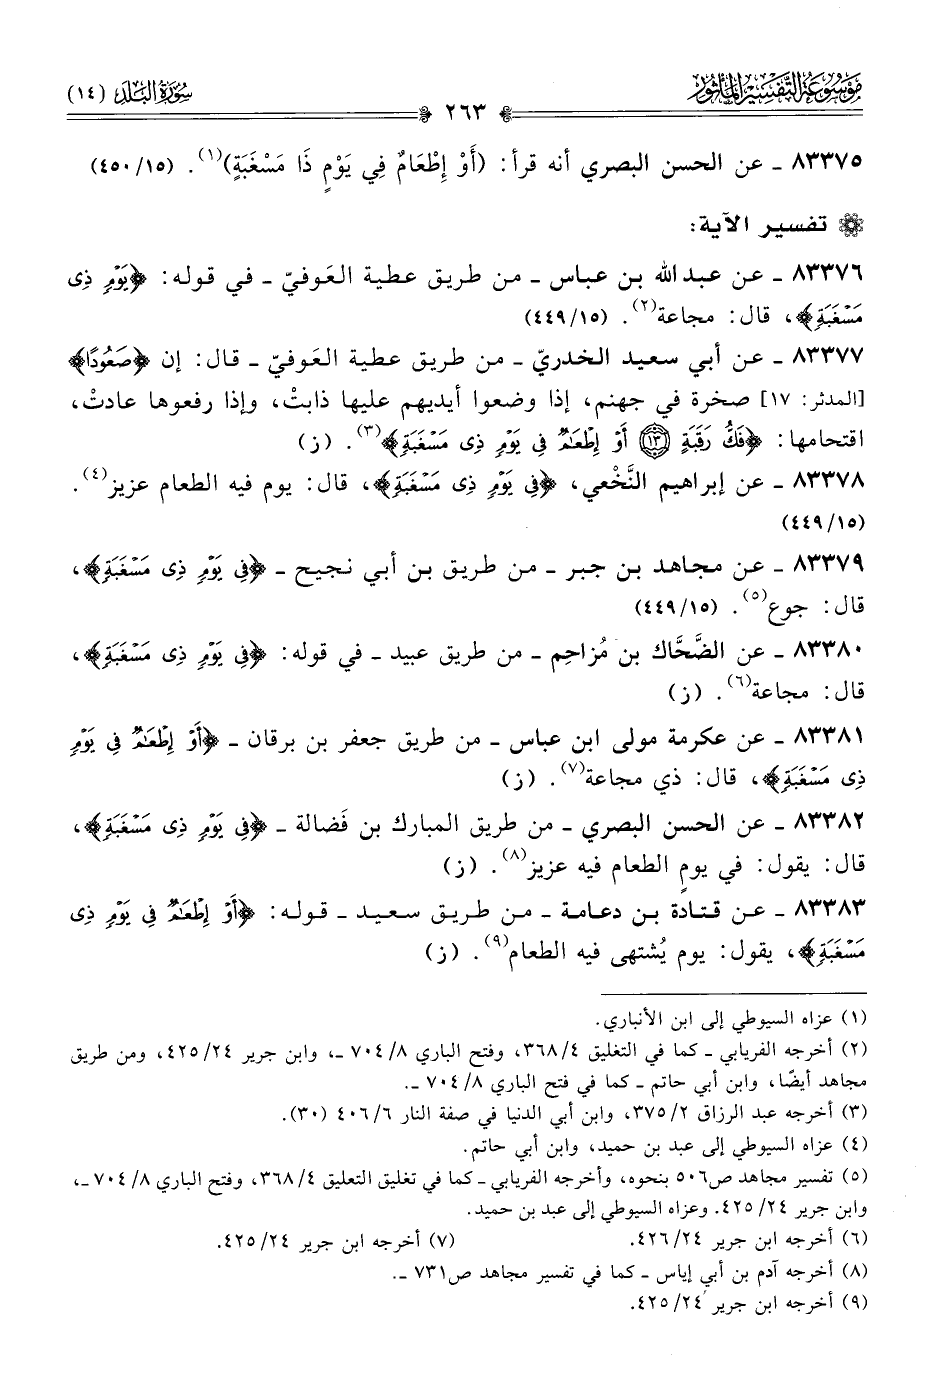 موسوعة التفسير المأثور
سورة البلد (١٤)
٢٦٣
٨٣٣٧٥ ـ عن الحسن البصري أنه قرأ: (أَوْ إِطْعَامٌ فِي يَوْمٍ ذَا مَسْغَبَةٍ)(١). (١٥/ ٤٥٠)
تفسير الآية:
٨٣٣٧٦ ـ عن عبد الله بن عباس ـ من طريق عطية العَوفيّ ـ في قوله: ﴿يَوْمٍ ذِى
مَسْغَبَةٍ﴾، قال: مجاعة(٢). (١٥/ ٤٤٩)
٨٣٣٧٧ ـ عن أبي سعيد الخدريّ ـ من طريق عطية العَوفيّ ـ قال: إن ﴿صَعُودًا﴾
[المدثر: ١٧] صخرة في جهنم، إذا وضعوا أيديهم عليها ذابتْ، وإذا رفعوها عادتْ،
اقتحامها: ﴿فَكُّ رَقَبَةٍ ۝١٣ أَوْ إِطْعَٰمٌ فِى يَوْمٍ ذِى مَسْغَبَةٍ﴾(٣). (ز)
٨٣٣٧٨ ـ عن إبراهيم النَّخْعي، ﴿فِى يَوْمٍ ذِى مَسْغَبَةٍ﴾، قال: يوم فيه الطعام عزيز(٤).
(١٥/ ٤٤٩)
٨٣٣٧٩ ـ عن مجاهد بن جبر ـ من طريق بن أبي نجيح ـ ﴿فِى يَوْمٍ ذِى مَسْغَبَةٍ﴾،
قال: جوع(٥). (١٥/ ٤٤٩)
٨٣٣٨٠ ـ عن الضَّحَّاك بن مُزاحِم ـ من طريق عبيد ـ في قوله: ﴿فِى يَوْمٍ ذِى مَسْغَبَةٍ﴾،
قال: مجاعة(٦). (ز)
٨٣٣٨١ ـ عن عكرمة مولى ابن عباس ـ من طريق جعفر بن برقان ـ ﴿أَوْ إِطْعَٰمٌ فِى يَوْمٍ
ذِى مَسْغَبَةٍ﴾، قال: ذي مجاعة(٧). (ز)
٨٣٣٨٢ ـ عن الحسن البصري ـ من طريق المبارك بن فَضالة ـ ﴿فِى يَوْمٍ ذِى مَسْغَبَةٍ﴾،
قال: يقول: في يومٍ الطعام فيه عزيز(٨). (ز)
٨٣٣٨٣ ـ عن قتادة بن دعامة ـ من طريق سعيد ـ قوله: ﴿أَوْ إِطْعَٰمٌ فِى يَوْمٍ ذِى
مَسْغَبَةٍ﴾، يقول: يوم يُشتهى فيه الطعام(٩). (ز)
(١) عزاه السيوطي إلى ابن الأنباري.
(٢) أخرجه الفريابي ـ كما في التغليق ٤/ ٣٦٨، وفتح الباري ٨/ ٧٠٤ ـ، وابن جرير ٢٤/ ٤٢٥، ومن طريق
مجاهد أيضًا، وابن أبي حاتم ـ كما في فتح الباري ٨/ ٧٠٤ ـ.
(٣) أخرجه عبد الرزاق ٢/ ٣٧٥، وابن أبي الدنيا في صفة النار ٦/ ٤٠٦ (٣٠).
(٤) عزاه السيوطي إلى عبد بن حميد، وابن أبي حاتم.
(٥) تفسير مجاهد ص٥٠٦ بنحوه، وأخرجه الفريابي ـ كما في تغليق التعليق ٤/ ٣٦٨، وفتح الباري ٨/ ٧٠٤ ـ،
وابن جرير ٢٤/ ٤٢٥. وعزاه السيوطي إلى عبد بن حميد.
(٦) أخرجه ابن جرير ٢٤/ ٤٢٦. (٧) أخرجه ابن جرير ٢٤/ ٤٢٥.
(٨) أخرجه آدم بن أبي إياس ـ كما في تفسير مجاهد ص٧٣١ ـ.
(٩) أخرجه ابن جرير ٢٤/ ٤٢٥.